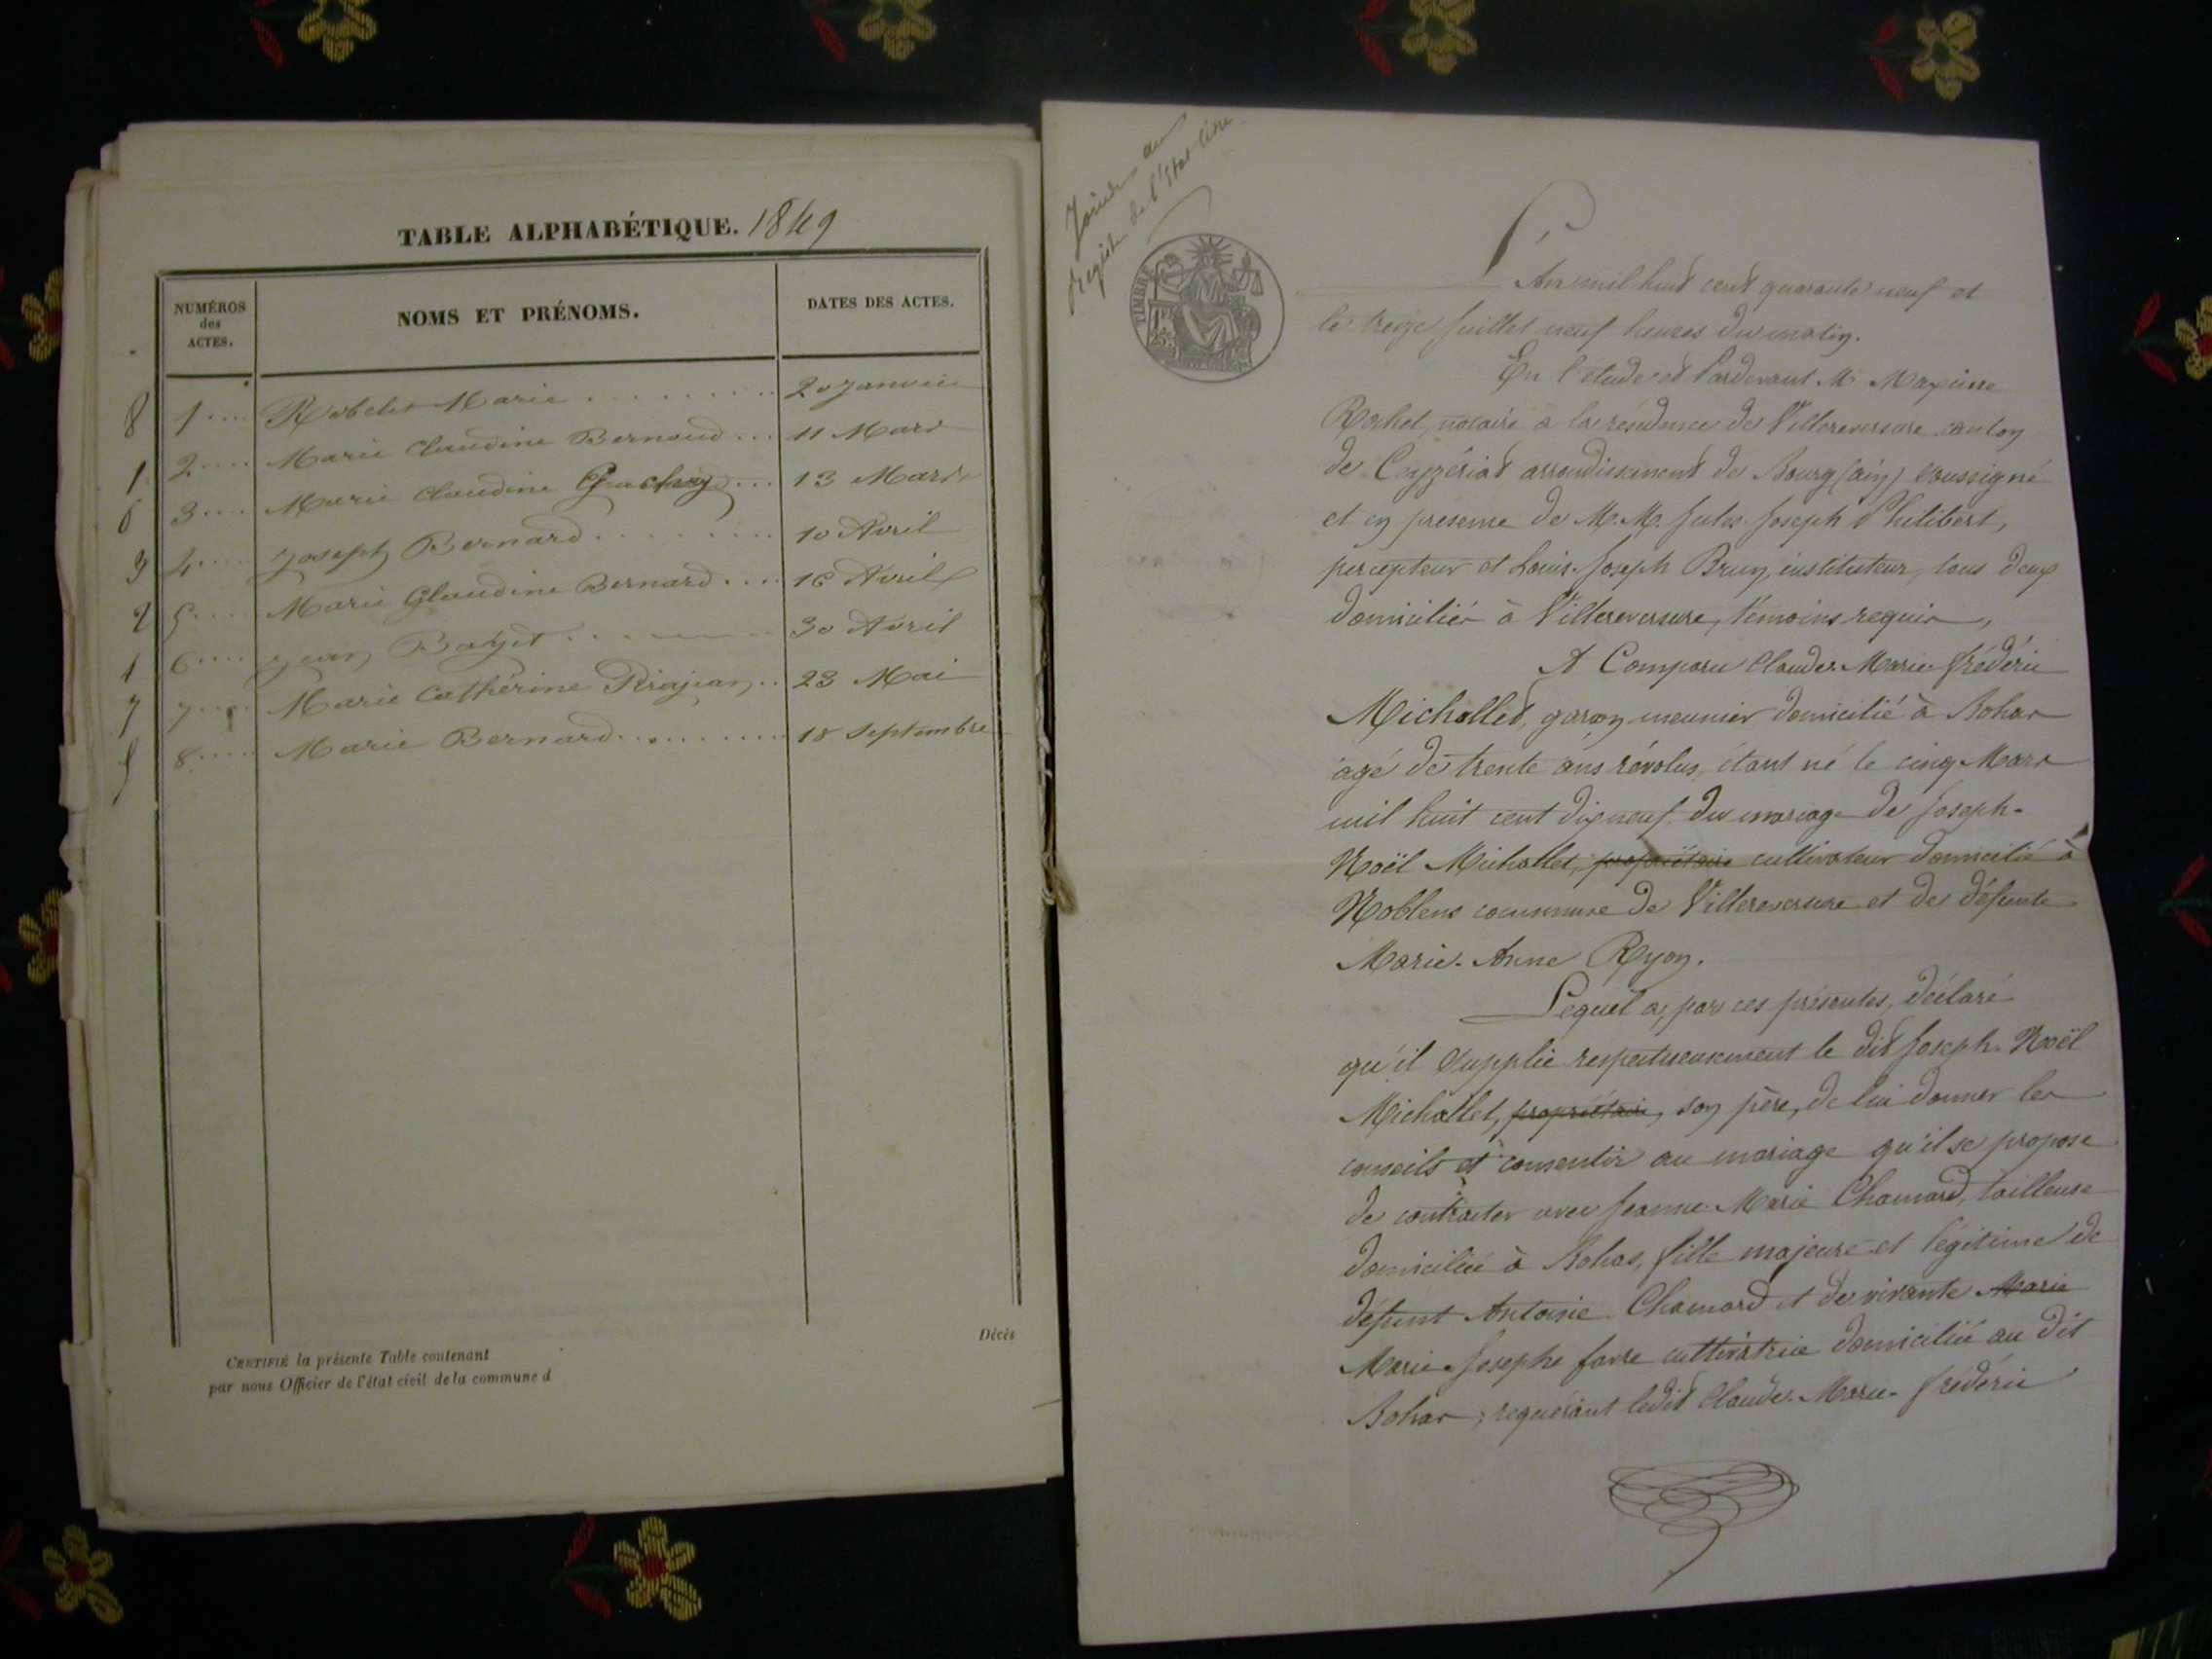 TABLE ALPHABÉTIQUE. 1849
NUMÉROS des ACTES.
NOMS ET PRÉNOMS.
DATES DES ACTES.
8 1 Robelet Marie 20 Janvier
1 2 Marie Claudine Bernard 11 Mars
6 3 Marie Claudine 13 Mars
3 4 Joseph Bernard 10 Avril
2 5 Marie Glaudine Bernard 16 Avril
1 6 Jean 30 Avril
7 7 Marie Cathérine Pirajean 23 Mai
5 8 Marie Bernard 18 Septembre
Décès
CERTIFIÉ la présente Table contenant
par nous Officier de l'état civil de la commune d
Joindre au
Registre de l'Etat Civil
TIMBRE
L'An mil huit cent quarante neuf et
le treize Juillet neuf heures du matin.
En l'étude et Pardevant Me Maxime
Rochet, notaire à la résidence de Villereversure canton
de Ceyzériat arrondissement de Bourg (ain) soussigné
et en présence de M.M. Jules Joseph Philibert,
percepteur et Louis-Joseph Brun, instituteur, tous deux
domiciliés à Villereversure, témoins requis,
A Comparu Claude-Marie-frédéric
Michallet, garçon meunier domicilié à Bohas
agé de trente ans révolus, étant né le cinq Mars
mil huit cent dix neuf du mariage de Joseph-
Noël Michallet, propriétaire cultivateur domicilié à
Noblens commune de Villereversure et de défunte
Marie-Anne Ryon.
Lequel a, par ces présentes, déclaré
qu'il supplie respectueusement le dit Joseph-Noël
Michallet, propriétaire, son père, de lui donner les
conseils et consentir au mariage qu'il se propose
de contracter avec Jeanne-Marie Chamard, tailleuse
domiciliée à Bohas, fille majeure et légitime de
défunt Antoine Chamard et de vivante Marie
Marie-Josephe favre cultivatrice domiciliée au dit
Bohas ; requérant ledit Claude-Marie-frédéric